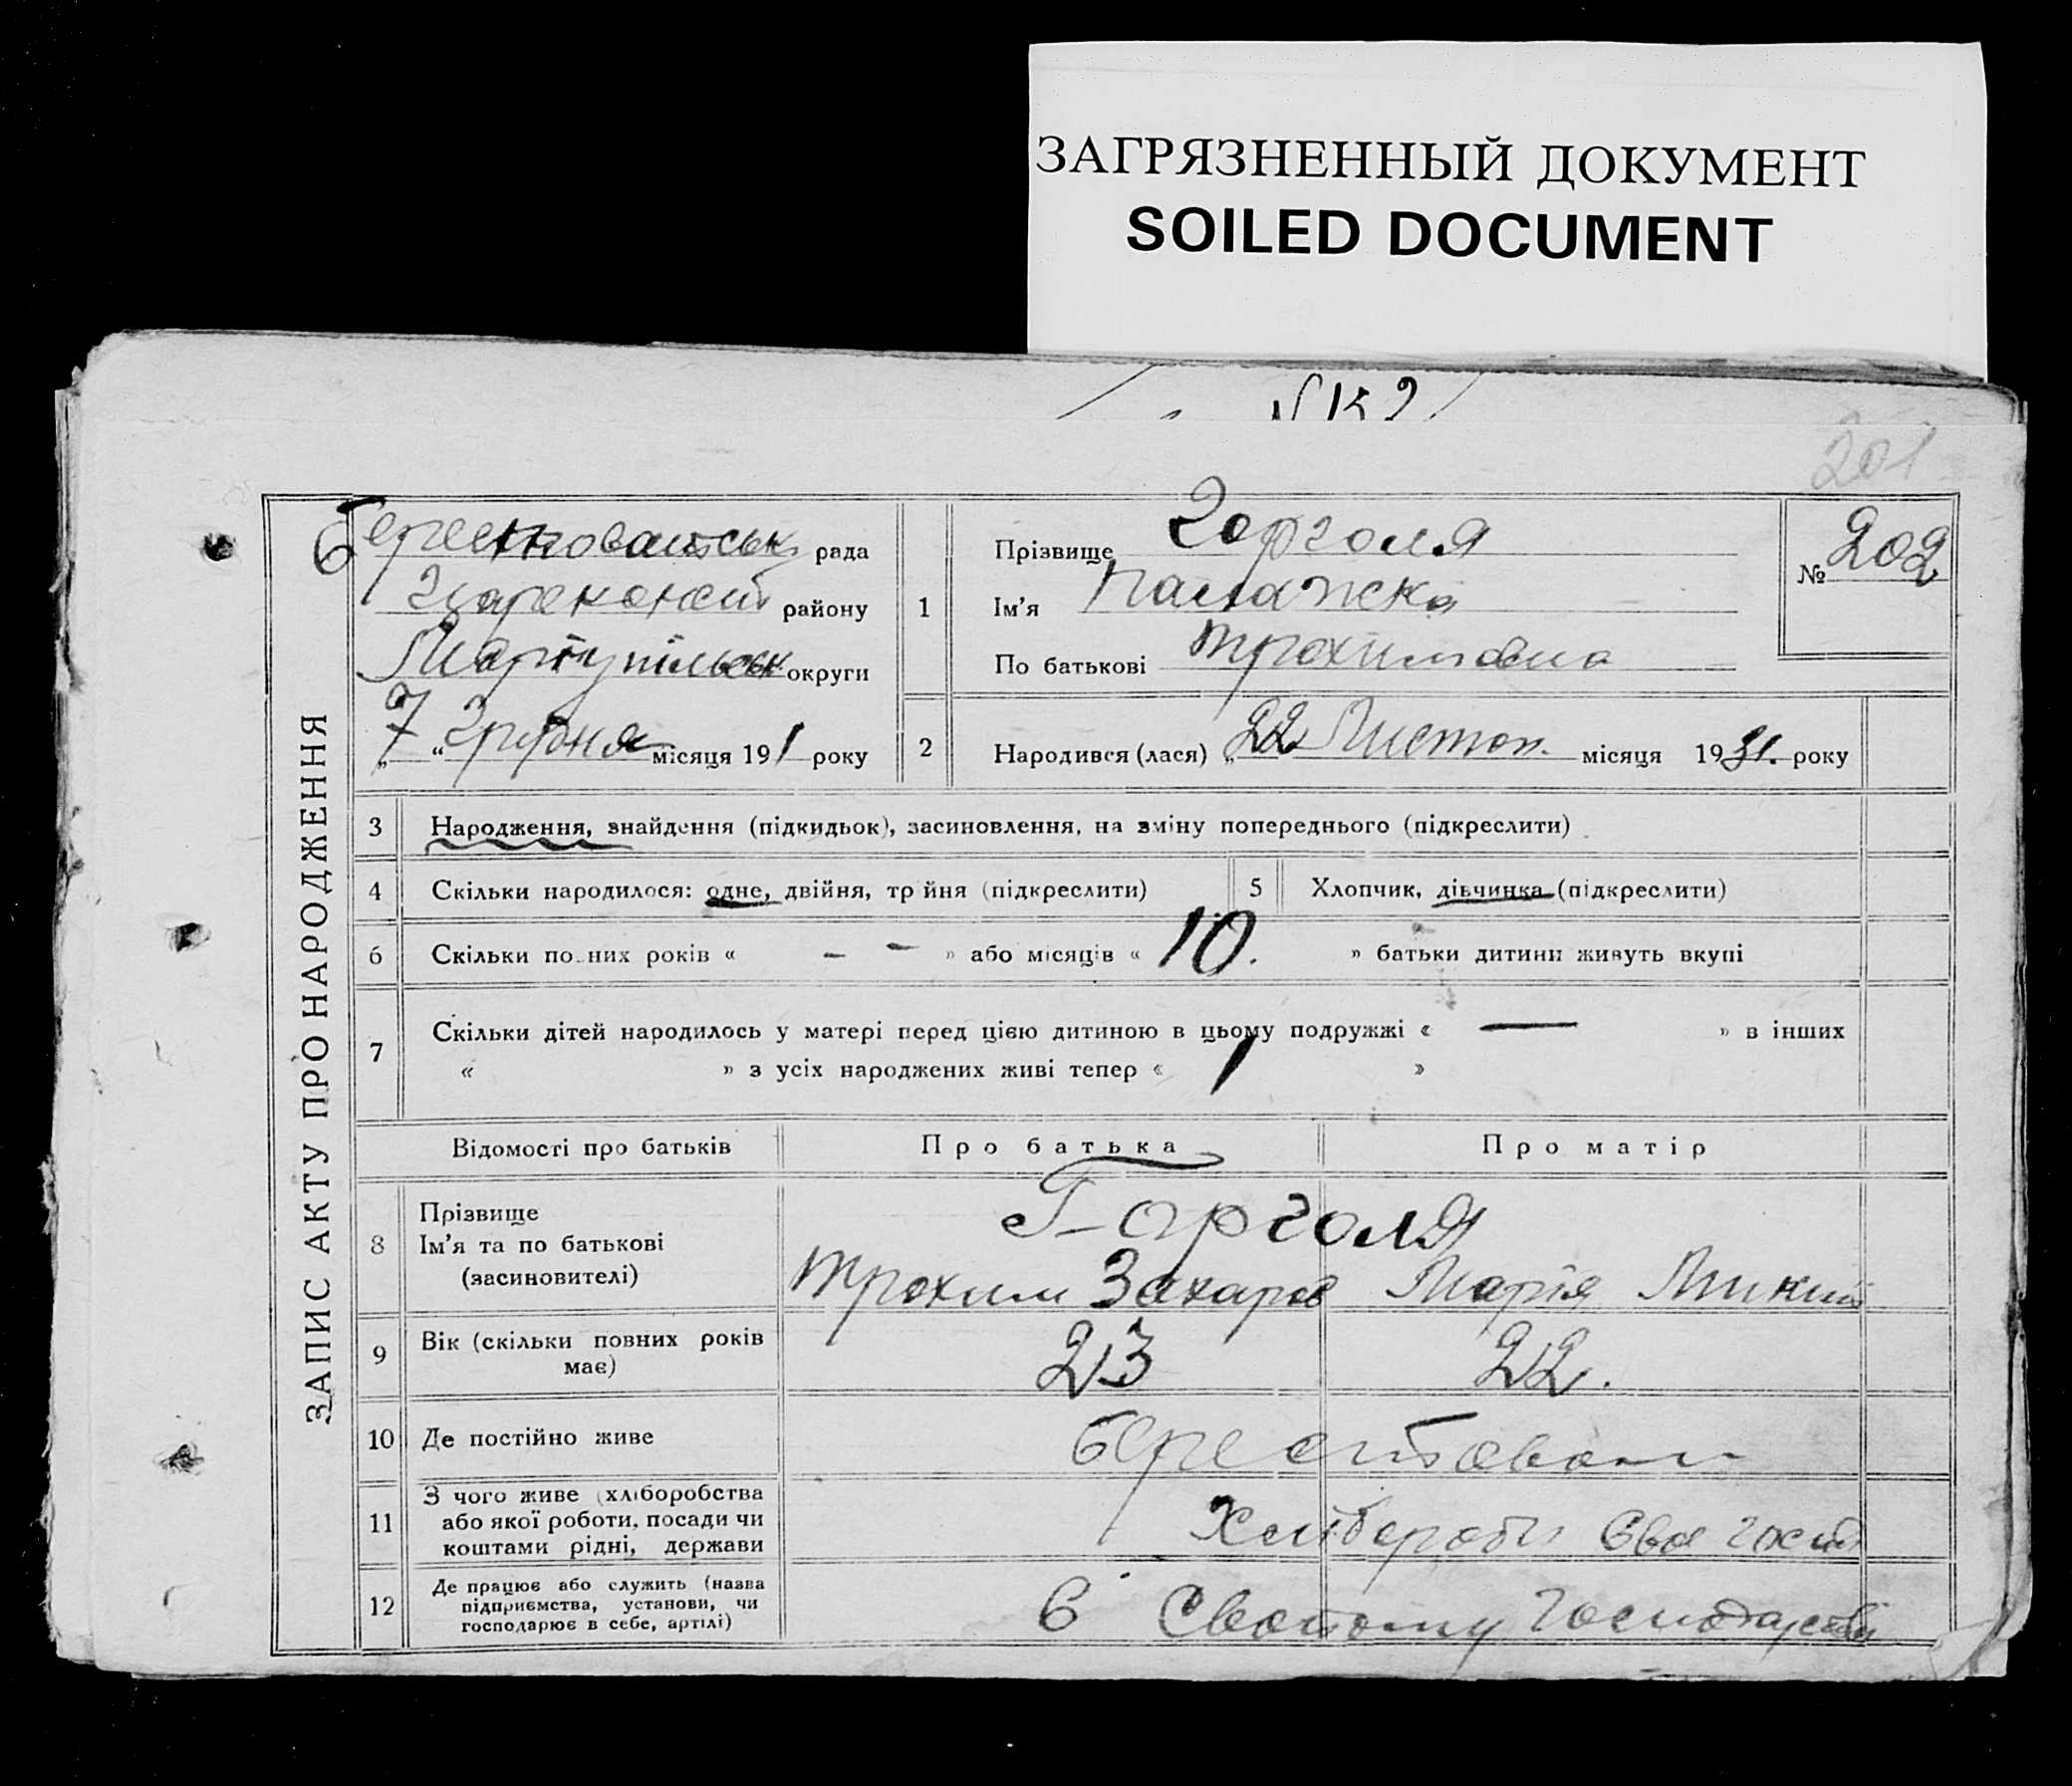 ЗАГРЯЗНЕННЫЙ ДОКУМЕНТ
SOILED DOCUMENT
201
ЗАПИС АКТУ ПРО НАРОДЖЕННЯ
рада
району
Маріупільськ округи
„7“ Грудня місяця 191 року
1
Прізвище Горголя
Ім'я Палажка
По батькові Трохимовна
№ 202
2
Народився (лася) „22 Листоп. місяця 1931. року
3 Народження, знайдення (підкидьок), засиновлення, на зміну попереднього (підкреслити)
4 Скільки народилося: одне, двійня, тр йня (підкреслити)
5 Хлопчик, дівчинка (підкреслити)
6 Скільки по них років « — — » або місяців « 10. » батьки дитини живуть вкупі
7 Скільки дітей народилось у матері перед цією дитиною в цьому подружжі « — » в інших
« » з усіх народжених живі тепер « 1 »
Відомості про батьків Про батька Про матір
8 Прізвище
Ім'я та по батькові
(засиновителі)
Горголя
Трохим Захаров Марія
9 Вік (скільки повних років
має)
23 22.
10 Де постійно живе
11 З чого живе (хліборобства
або якої роботи, посади чи
коштами рідні, держави
12 Де працює або служить (назва
підприємства, установи, чи
господарює в себе, артілі)
В Свойому господарстві